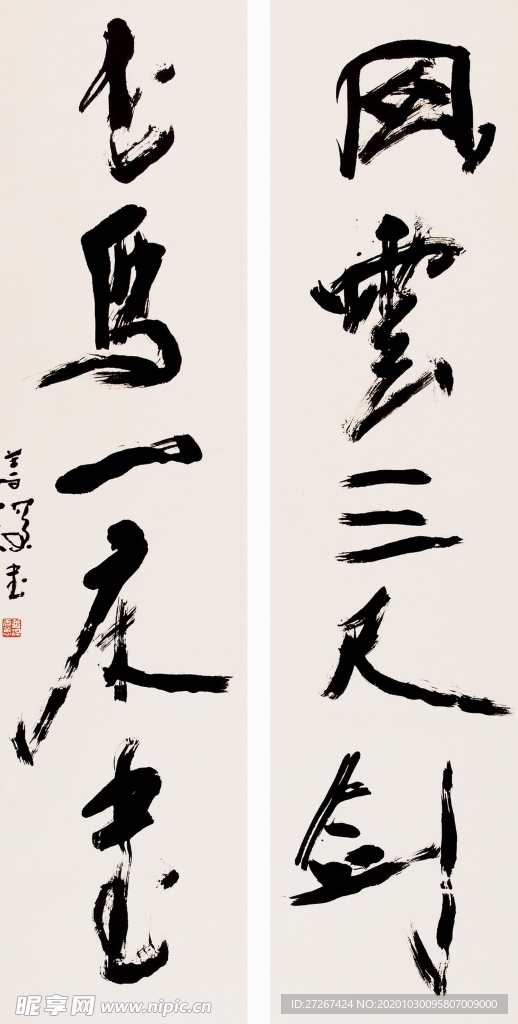 风雲三尺剑
花鳥一床書
昵享网 www.nipic.cn
ID:27267424 NO:20201030095807009000